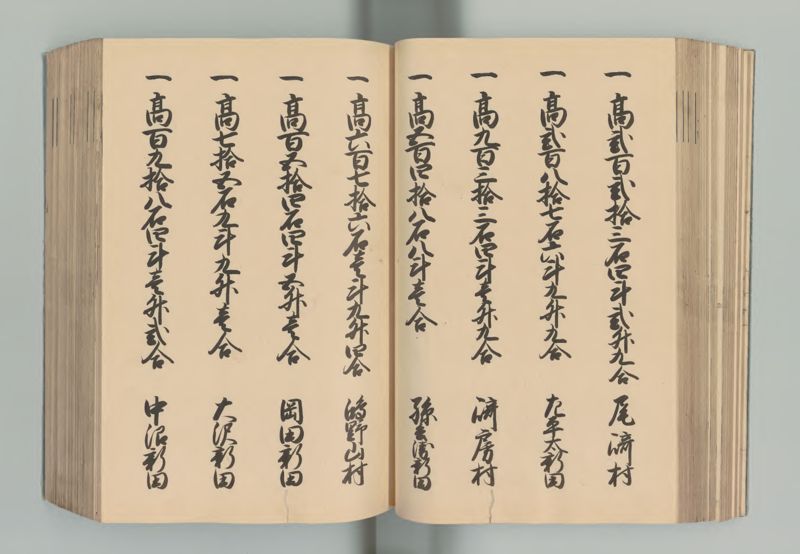 一 高弐百弐拾三石四斗弐升九合 尾崎村
一 高弐百八拾七石六斗九升九合 左平太新田
一 高九百三拾三石四斗壱升九合 崎房村
一 高五百四拾八石八斗壱合 孫兵衛新田
一 高六百七拾六石壱斗九升四合 鴻野山村
一 高百五拾四石四斗五升壱合 岡田新田
一 高七拾五石九斗九升壱合 大沢新田
一 高百九拾八石四斗壱升弐合 中沼新田